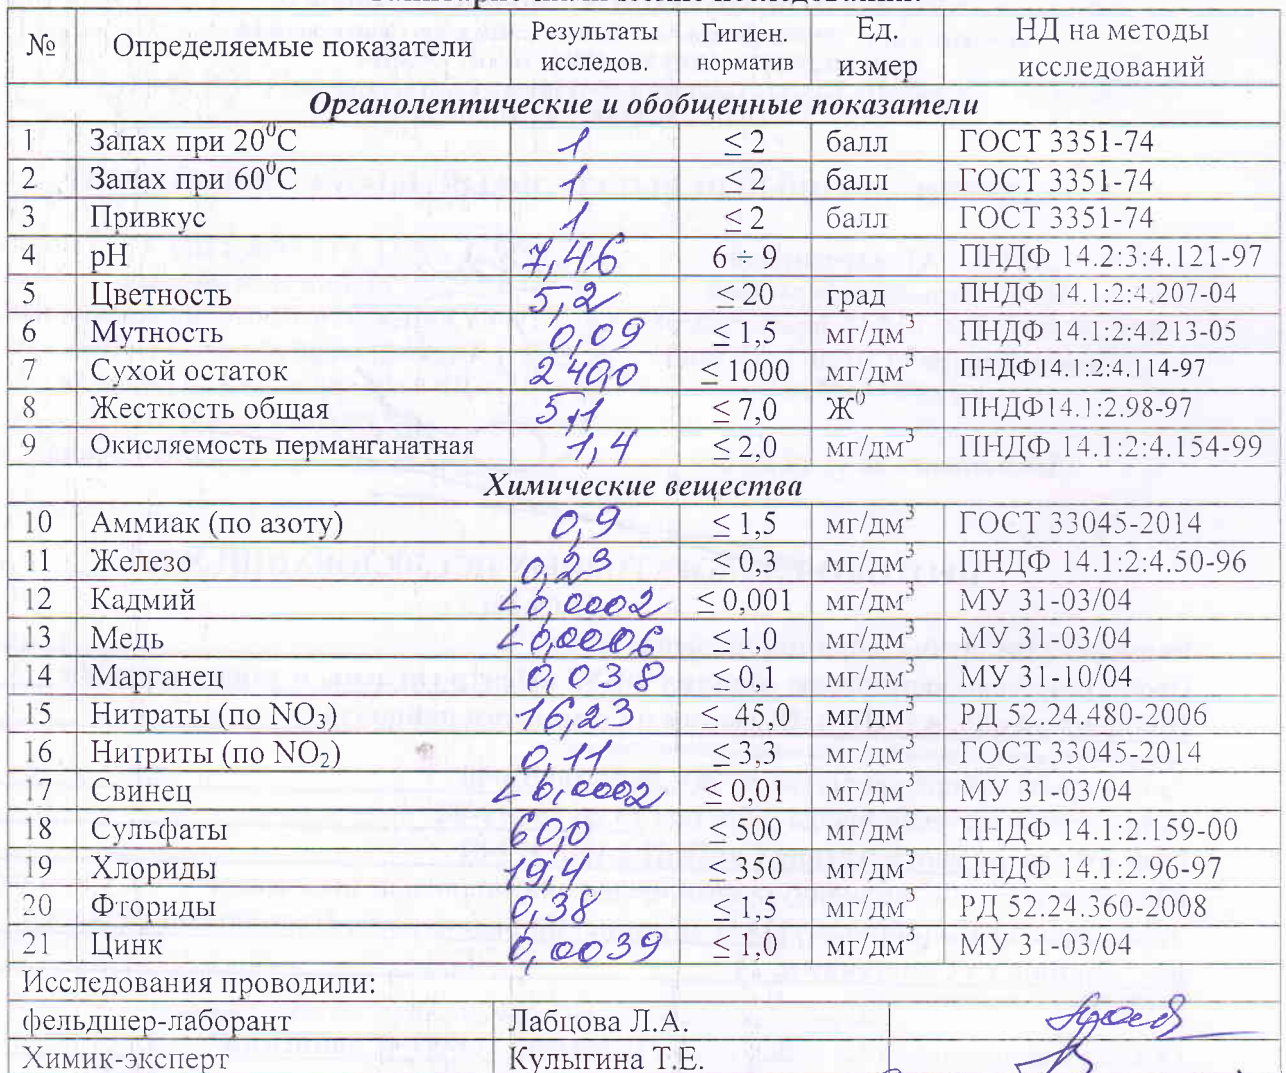 № Определяемые показатели Результаты исследов. Гигиен. норматив Ед. измер НД на методы исследований
Органолептические и обобщенные показатели
1 Запах при 20⁰С 1 ≤ 2 балл ГОСТ 3351-74
2 Запах при 60⁰С 1 ≤ 2 балл ГОСТ 3351-74
3 Привкус 1 ≤ 2 балл ГОСТ 3351-74
4 рН 7,46 6 ÷ 9 ПНДФ 14.2:3:4.121-97
5 Цветность 5,2 ≤ 20 град ПНДФ 14.1:2:4.207-04
6 Мутность 0,09 ≤ 1,5 мг/дм³ ПНДФ 14.1:2:4.213-05
7 Сухой остаток 240,0 ≤ 1000 мг/дм³ ПНДФ14.1:2:4.114-97
8 Жесткость общая 5,1 ≤ 7,0 Ж⁰ ПНДФ14.1:2.98-97
9 Окисляемость перманганатная 1,4 ≤ 2,0 мг/дм³ ПНДФ 14.1:2:4.154-99
Химические вещества
10 Аммиак (по азоту) 0,9 ≤ 1,5 мг/дм³ ГОСТ 33045-2014
11 Железо 0,23 ≤ 0,3 мг/дм³ ПНДФ 14.1:2:4.50-96
12 Кадмий <0,0002 ≤ 0,001 мг/дм³ МУ 31-03/04
13 Медь <0,0006 ≤ 1,0 мг/дм³ МУ 31-03/04
14 Марганец 0,038 ≤ 0,1 мг/дм³ МУ 31-10/04
15 Нитраты (по NO₃) 16,23 ≤ 45,0 мг/дм³ РД 52.24.480-2006
16 Нитриты (по NO₂) 0,11 ≤ 3,3 мг/дм³ ГОСТ 33045-2014
17 Свинец <0,0002 ≤ 0,01 мг/дм³ МУ 31-03/04
18 Сульфаты 60,0 ≤ 500 мг/дм³ ПНДФ 14.1:2.159-00
19 Хлориды 19,4 ≤ 350 мг/дм³ ПНДФ 14.1:2.96-97
20 Фториды 0,38 ≤ 1,5 мг/дм³ РД 52.24.360-2008
21 Цинк 0,0039 ≤ 1,0 мг/дм³ МУ 31-03/04
Исследования проводили:
фельдшер-лаборант Лабцова Л.А.
Химик-эксперт Кулыгина Т.Е.